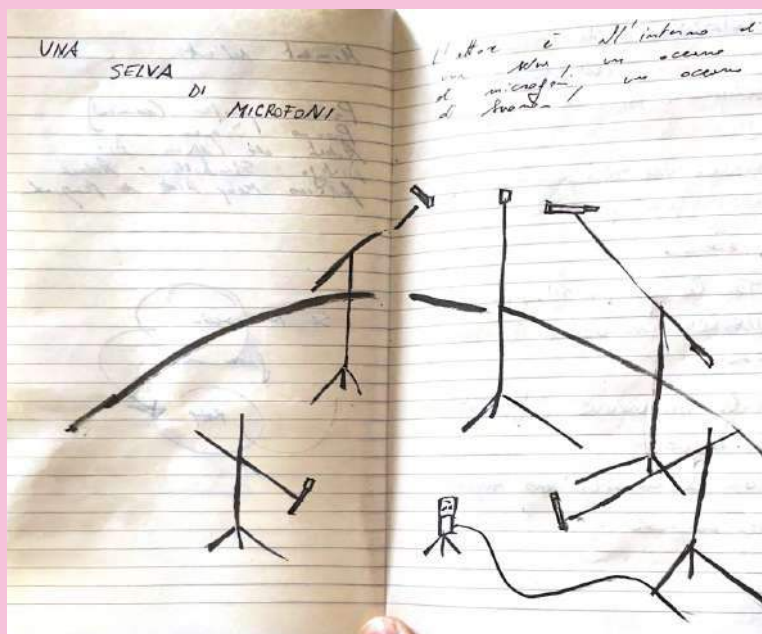 UNA
SELVA
DI
MICROFONI
L'attore è all'interno di
una selva, un oceano
di microfoni, un oceano
di